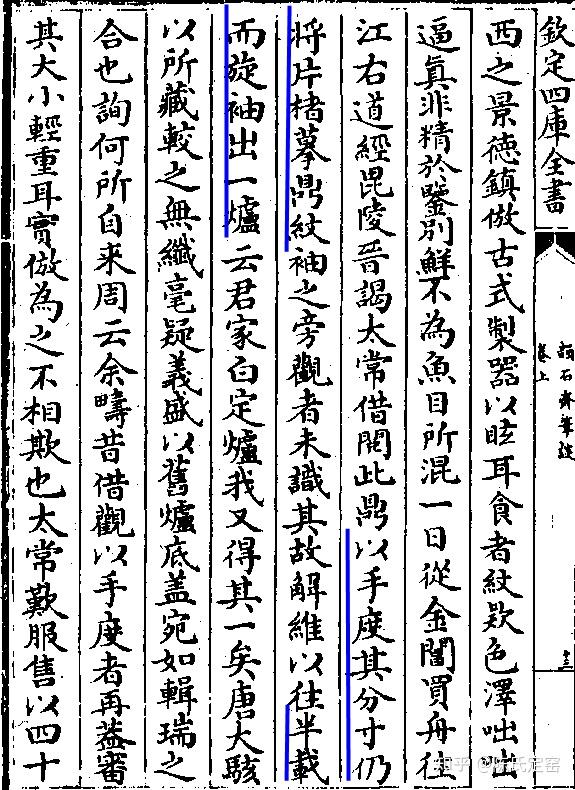 欽定四庫全書
韻石齋筆談
卷上
十三
西之景德鎮倣古式製器以眩耳食者紋欵色澤咄出
逼真非精於鑒別鮮不為魚目所混一日從金閶買舟往
江右道經毘陵晉謁太常借閱此鼎以手度其分寸仍
將片楮摹鼎紋袖之旁觀者未識其故解維以往半載
而旋袖出一爐云君家白定爐我又得其一矣唐大駭
以所藏較之無纖毫疑義盛以舊爐底盖宛如輯瑞之
合也詢何所自来周云余疇昔借觀以手度者再葢審
其大小輕重耳實倣為之不相欺也太常歎服售以四十
知乎 @陈氏定窑